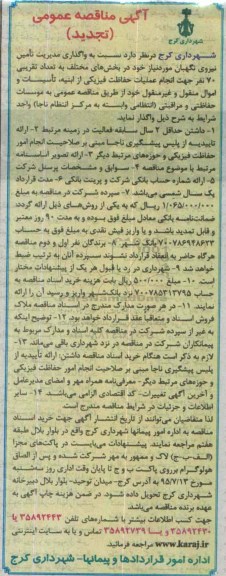 آگهی مناقصه عمومی
(تجدید)
شهرداری کرج
شهرداری کرج درنظر دارد نسبت به واگذاری مدیریت تأمین
نیروی نگهبان موردنیاز خود در بخش‌های مختلف به تعداد تقریبی
۷۰ نفر جهت انجام عملیات حفاظت فیزیکی از ابنیه، تأسیسات و
اموال منقول و غیرمنقول خود از طریق مناقصه عمومی به موسسات
حفاظتی و مراقبتی (انتظامی وابسته به مرکز انتظام ناجا) واجد
شرایط به شرح ذیل واگذار نماید.
۱- داشتن حداقل ۲ سال سابقه فعالیت در زمینه مرتبط ۲- ارائه
تاییدیه از پلیس پیشگیری ناجا مبنی بر صلاحیت انجام امور
حفاظت فیزیکی و حوزه‌های مرتبط دیگر ۳- ارائه تصویر اساسنامه
مرتبط با موضوع مناقصه ۴- سوابق و مشخصات پرسنل شرکت
۵- ارائه شماره حساب بانکی شرکت و پرینت بانکی ۶- مدت قرارداد
یک سال شمسی می‌باشد ۷- سپرده شرکت در مناقصه به مبلغ
۱/۰۶۵/۰۰۰/۰۰۰ ریال که به یکی از روش‌های ذیل ارائه گردد:
ضمانت‌نامه بانکی معادل مبلغ فوق بسوده و به مدت ۹۰ روز معتبر
و قابل تمدید باشد. و یا واریز فیش نقدی به مبلغ فوق به حساب
۷۰۰۷۸۶۹۴۸۶۲۳ بانک شهر ۸- برندگان نفر اول و دوم مناقصه
هرگاه حاضر به انعقاد قرارداد نشوند سپرده آنان به ترتیب ضبط
خواهد شد ۹- شهرداری در رد یا قبول هر یک از پیشنهادات مختار
است. ۱۰- مبلغ ۵۰۰/۰۰۰ ریال بابت هزینه خرید اسناد مناقصه به
حساب ۷۰۰۷۸۵۳۱۲۷۹۵ نزد بانک شهر واریز و رسید آن را ارائه
نمایند. ۱۱- در هر صورت مدارک مندرج در اسناد مناقصه ملاک
فروش اسناد و متعاقباً عقد قرارداد خواهد بود. ۱۲- توضیح اینکه
به غیر از سپرده شرکت در مناقصه کلیه اسناد و مدارک مربوط به
پیمانکاران شرکت در مناقصه در نزد شهرداری باقی می‌ماند. ۱۳-
لازم به ذکر است هنگام خرید اسناد مناقصه داشتن: ارائه تأییدیه از
پلیس پیشگیری ناجا مبنی بر صلاحیت انجام امور حفاظت فیزیکی
و حوزه‌های مرتبط دیگر- معرفی‌نامه همراه مهر و امضای مدیرعامل
و آخرین آگهی تغییرات- کد اقتصادی الزامی می‌باشد. ۱۴- سایر
اطلاعات و جزئیات در شرایط مناقصه مندرج است.
لذا متقاضیان می‌توانند از تاریخ انتشار آگهی جهت خرید اسناد
مناقصه به اداره امور پیمانها شهرداری کرج واقع در بلوار بلال طبقه
هفتم مراجعه نمایند. پیشنهادات می‌بایست در پاکت‌های مجزا
(الف-ب-ج) لاک و ممهور به مهر شرکت شده و پس از الصاق
هولوگرام برروی پاکت ب و ج تا پایان وقت اداری روز سه‌شنبه
مورخ ۹۵/۷/۱۳ به آدرس کرج- میدان توحید- بلوار بلال دبیرخانه
شهرداری کرج تحویل داده شود. در ضمن هزینه چاپ آگهی به
عهده برنده مناقصه می‌باشد.
جهت کسب اطلاعات بیشتر با شماره‌های تلفن ۳۵۸۹۲۴۴۳ یا
۳۵۸۹۲۴۳۰ و یا ۳۵۸۹۲۷۳۹ تماس و یا به سایت اینترنتی
www.karaj.ir مراجعه فرمائید.
اداره امور قراردادها و پیمانها- شهرداری کرج